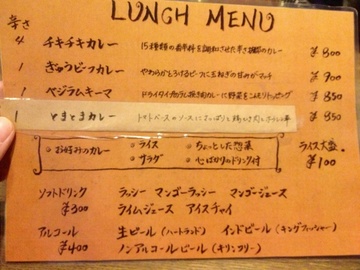 LUNCH MENU
辛さ
4 チキチキカレー 15種類の香辛料を調和させた辛さ抜群のカレー ¥800
1 ぎゅうビーフカレー やわらかとろけるビーフに玉ねぎの甘みがマッチ ¥900
1 ベジラムキーマ ¥850
1 とまとまカレー トマトベースのソースに ¥850
・お好みのカレー ・ライス ・ちょっとした惣菜
・サラダ ・心ばかりのドリンク付
ライス大盛 ¥100
ソフトドリンク ラッシー マンゴーラッシー マンゴージュース
¥300 ライムジュース アイスチャイ
アルコール 生ビール(ハートランド) インドビール(キングフィッシャー)
¥400 ノンアルコールビール(キリンフリー)